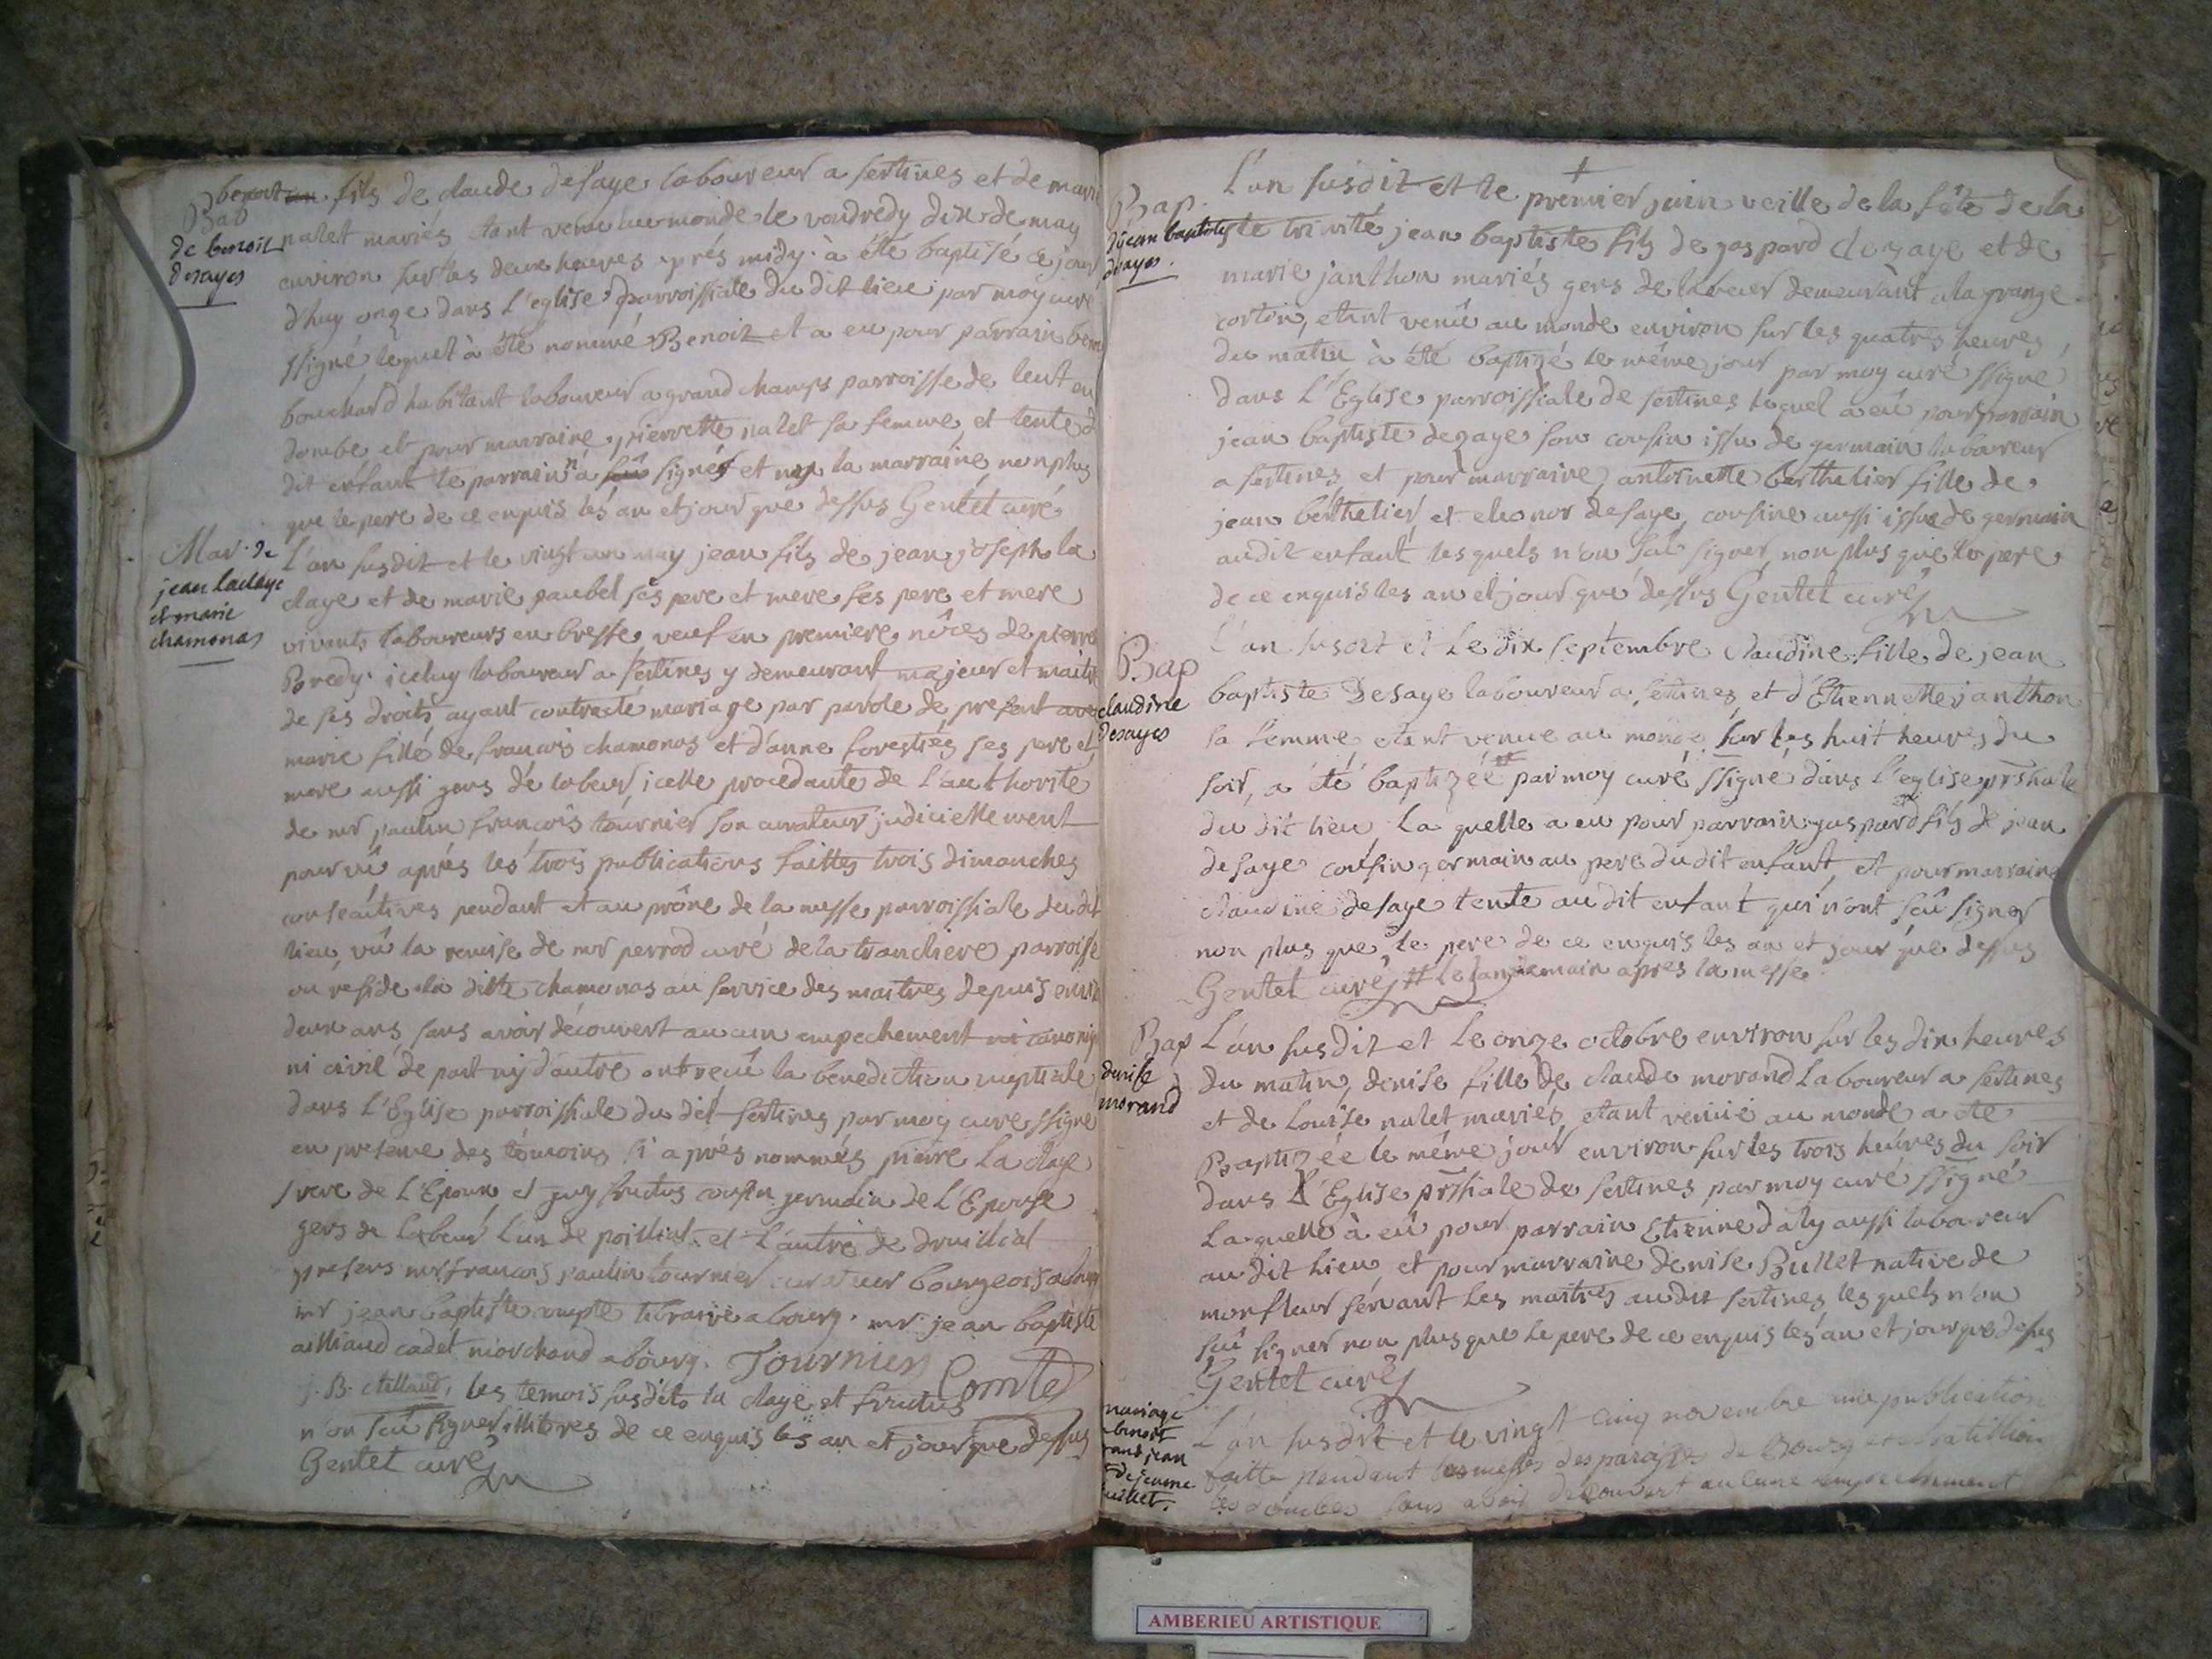 benoit fils de claude desaye laboureur a sertines et de marie
Bap
de benoit
desayes
nalet mariés etant venu au monde le vendredy dix de may
environ sur les deux heures aprés midy à été baptisé ce jour
d'huy onze dans l'eglise parroissiale du dit lieu par moy curé
ssigné lequel à été nommé Benoit et a eu pour parrain
bouchard habitant laboureur a grand champs parroisse de lent en
dombe et pour marraine pierrette nalet sa femme et tente
dit enfant le parrain n'a signé et la marraine non plus
que le pere de ce enquis les an et jour que dessus Gentet curé
Mar. de
jean laclaye
et marie
chamonas
L'an susdit et le vingt un may jean fils de jean joseph la
claye et de marie paubel ses pere et mere ses pere et mere
vivants laboureurs en bresse veuf en premiere nôces de pierre
Bredy iceluy laboureur a sertines y demeurant majeur et maitre
de ses droits ayant contracté mariage par parole de present avec
marie fille de francois chamonas et d'anne forestiés ses pere et
mere aussi gens de labeur, icelle procedante de l'authorité
de mr paulin francois tournier son curateur judiciellement
pourvû aprés les trois publications faittes trois dimanches
consecutives pendant et au prône de la messe parroissiale du dit
lieu, vû la remise de mr perrod curé de la tranchiere parroisse
ou reside la ditte chamonas au service des maitres depuis
deux ans sans avoir découvert aucun empechement ni
ni civil de part ny d'autre ont reçû la benediction nuptiale
dans l'Eglise parroissiale du dit sertines par moy curé ssigné
en presence des témoins si aprés nommés pierre La claye
frere de L'Epoux et guy fructus cousin germain de L'Epouse
gens de labeur l'un de poilliat et L'autre de druillat
presens mr francois paulin tournier curateur bourgeois
mr jean baptiste compte libraire a bourg. mr jean baptiste
ailliaud cadet marchand a bourg. Tournier Comte
j. B. Aillaud, les temois susdits la claye et fructus
n'on scû signer illiteres de ce enquis les an et jour que dessus
Gentet curé
L'an susdit et le premier juin veille de la fête de la
Bap.
jean baptiste
desayes.
ste trinité jean baptiste fils de gaspard dezaye et de
marie janthon mariés gens de labeur demeurant a la grange
cortin, etant venû au monde environ sur les quatres heures
du matin à été baptizé le même jour par moy curé ssigné
dans l'Eglise parroissiale de sertines lequel a eû pour parrain
jean baptiste dezaye son cousin issu de germain laboureur
a sertines et pour marraine antoinette berthelier fille de
jean berthelier et eleonor desaye, cousine aussi issue de germain
audit enfant lesquels n'on signer non plus que le pere
de ce enquis les an et jour que dessus Gentet curé
Bap
claudine
desayes
L'an susdit et Le dix septembre claudine fille de jean
baptiste Desaye laboureur a sertines et d'Etiennette janthon
sa femme etant venue au monde sur les huit heures du
soir, a été baptizéé # par moy curé ssigné dans l'eglise prshale
du dit lieu La quelle a eu pour parrain gaspard fils de jean
desaye cousin germain au pere du dit enfant, et pour marraine
claudine desaye tente au dit enfant qui n'ont scû signer
non plus que le pere de ce enquis les an et jour que dessus
Gentet curé # Le landemain apres la messe
Bap
denise
morand
L'an susdit et Le onze octobre environ sur les dix heures
du matin, denise fille de claude morand Laboureur a sertines
et de Louise nalet mariés, etant venüe au monde a ete
Baptizéé le même jour environ sur les trois heures du soir
dans L'Eglise prshiale de sertines par moy curé ssigné
La quelle à eû pour parrain Etienne daly aussi laboureur
au dit Lieu et pour marraine denise Bullet native de
monfleur servant Les maitres audit sertines lesquels n'on
scû signer non plus que le pere de ce enquis les an et jour que dessus
Gentet curé
mariage
benoit
jean
L'an susdit et le vingt cinq novembre une publication
faitte pendant les messes des paroisses de Bourg et chatillion
les dombes sans avoir decouvert aucune empechement
AMBERIEU ARTISTIQUE